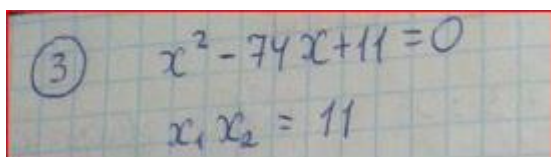 ③ x² - 74x + 11 = 0
x₁ x₂ = 11